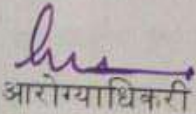 आरोग्याधिकरी